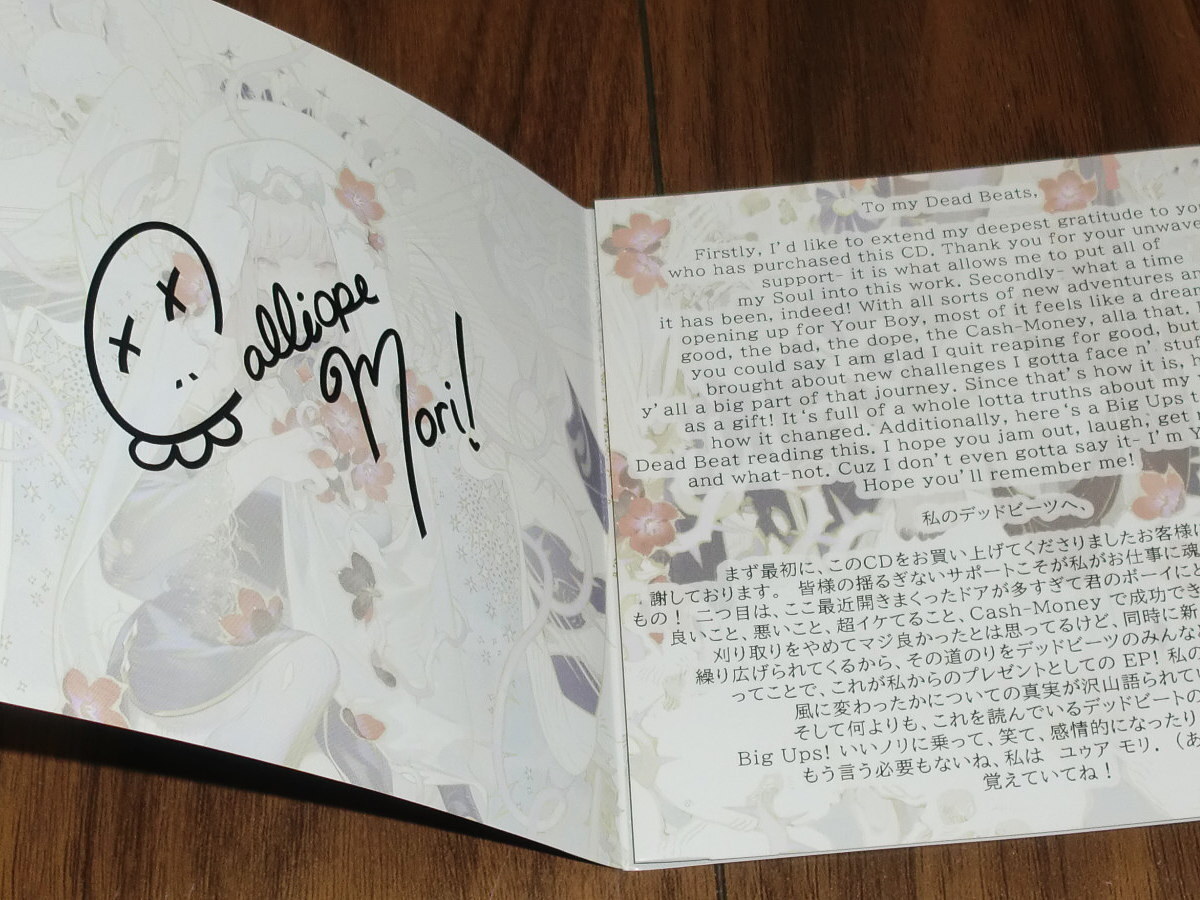 Calliope
Mori!
To my Dead Beats,
Firstly, I'd like to extend my deepest gratitude to
who has purchased this CD. Thank you for your
support- it is what allows me to put all of
my Soul into this work. Secondly- what a time
it has been, indeed! With all sorts of new adventures
opening up for Your Boy, most of it feels like a dream
good, the bad, the dope, the Cash-Money, alla that.
you could say I am glad I quit reaping for good, but
brought about new challenges I gotta face n' stuff
y'all a big part of that journey. Since that's how it is,
as a gift! It's full of a whole lotta truths about my
how it changed. Additionally, here's a Big Ups
Dead Beat reading this. I hope you jam out, laugh, get
and what-not. Cuz I don't even gotta say it- I'm
Hope you'll remember me!
私のデッドビーツへ、
まず最初に、このCDをお買い上げてくださりましたお客様に
謝しております。 皆様の揺るぎないサポートこそが私がお仕事に魂
もの！ 二つ目は、ここ最近開きまくったドアが多すぎて君のボーイにと
良いこと、悪いこと、超イケてること、Cash-Money で成功でき
刈り取りをやめてマジ良かったとは思ってるけど、同時に新
繰り広げられてくるから、その道のりをデッドビーツのみんな
ってことで、これが私からのプレゼントとしての EP! 私の
風に変わったかについての真実が沢山語られて
そして何よりも、これを読んでいるデッドビートの
Big Ups! いいノリに乗って、笑て、感情的になったり
もう言う必要もないね、私は ユゥア モリ．（あ
覚えていてね！